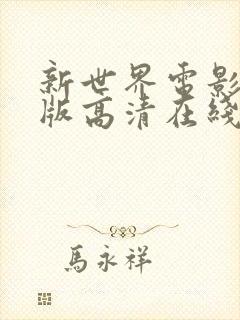 新世界电影
版高清在线
馬永祥